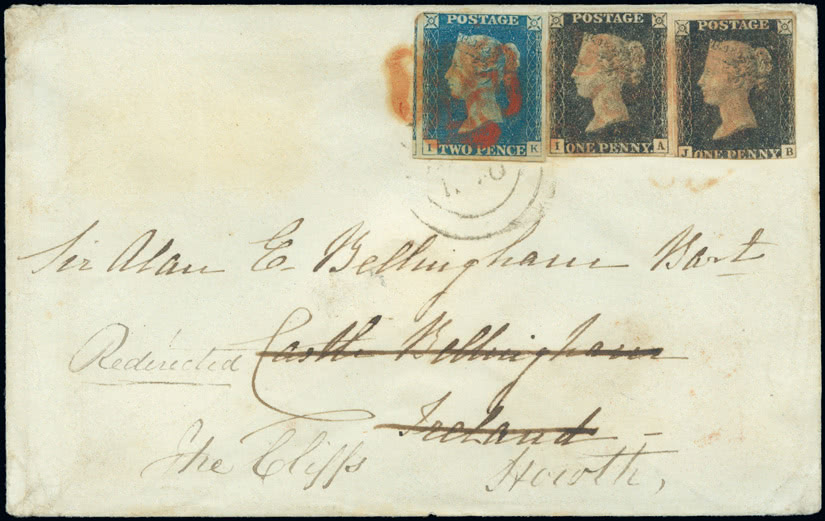 POSTAGE POSTAGE POSTAGE
I TWO PENCE K I ONE PENNY A J ONE PENNY B
Sir Alan E. Bellingham Bart
Redirected Castle Bellingham
Ireland -
The Cliffs Howth,